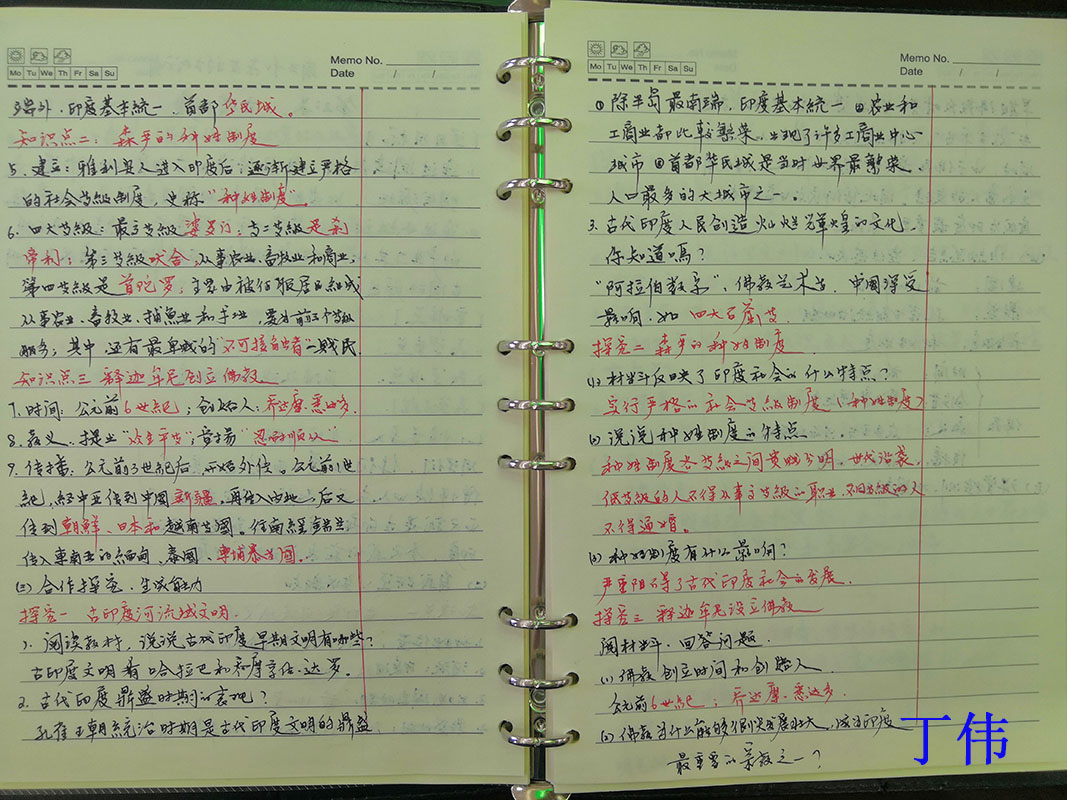 Memo No.
Mo Tu We Th Fr Sa Su
Date / /
端外，印度基本统一，首都华氏城。
知识点二：森严的种姓制度
5、建立：雅利安人进入印度后，逐渐建立严格
的社会等级制度，史称“种姓制度”
6、四大等级：最高等级婆罗门；第二等级是刹
帝利；第三等级吠舍，从事农业、畜牧业和商业，
第四等级是首陀罗，主要由被征服居民组成
从事农业、畜牧业、捕鱼业和手工业，要为前三个等级
服务；其中还有最卑贱的“不可接触者”—贱民
知识点三 释迦牟尼创立佛教
7、时间：公元前6世纪；创始人：乔达摩·悉达多。
8、意义：提出“众生平等”；宣扬“忍耐顺从”
9、传播：公元前3世纪后，开始外传。公元前1世
纪，经中亚传到中国新疆，再传入内地，后又
传到朝鲜、日本和越南等國。往南经锡兰
传入东南亚的缅甸、泰國、柬埔寨等國。
(二)合作探究、生成能力
探究一 古印度河流域文明.
1. 阅读教材，说说古代印度早期文明有哪些？
古印度文明有哈拉巴和摩亨佐·达罗。
2. 古代印度鼎盛时期的表现？
孔雀王朝统治时期是古代印度文明的鼎盛
Memo No.
Mo Tu We Th Fr Sa Su
Date / /
①除半岛最南端，印度基本统一 ②农业和
工商业都比较繁荣，出现了许多工商业中心
城市 ③首都华氏城是当时世界最繁荣、
人口最多的大城市之一。
3. 古代印度人民创造灿烂辉煌的文化，
你知道吗？
“阿拉伯数字”，佛教艺术等，中國深受
影响，如 四大石窟等.
探究二 森严的种姓制度
(1) 材料反映了印度社会的什么特点？
实行严格的社会等级制度（种姓制度）
(2) 说说种姓制度的特点
种姓制度各等级之间贵贱分明，世代沿袭，
低等级的人不得从事高等级的职业，不同等级的人
不得通婚。
(3) 种姓制度有什么影响？
严重阻碍了古代印度社会的发展.
探究三 释迦牟尼设立佛教
阅材料，回答问题.
(1) 佛教创立时间和创始人
公元前6世纪；乔达摩·悉达多.
(2) 佛教为什么能够很快发展壮大，成为印度
最重要的宗教之一？
丁伟